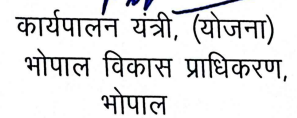 कार्यपालन यंत्री, (योजना)
भोपाल विकास प्राधिकरण,
भोपाल